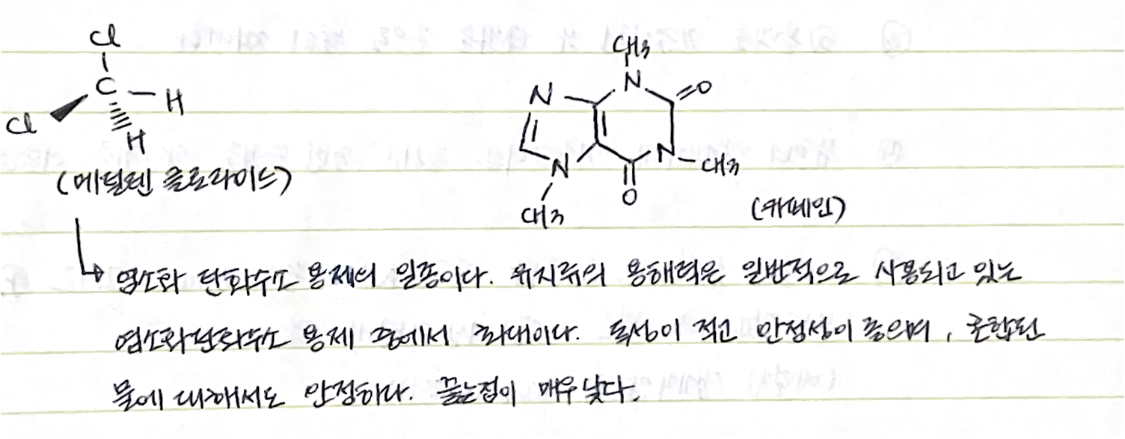 Cl
C
H
Cl
H
(메틸렌 클로라이드)
CH3
N
N
O
N
CH3
N
O
CH3
(카페인)
염소화 탄화수소 용제의 일종이다. 유지류의 용해력은 일반적으로 사용되고 있는
염소화탄화수소 용제 중에서 최대이다. 독성이 적고 안정성이 좋으며, 혼합된
물에 대해서도 안정하다. 끓는점이 매우 낮다.